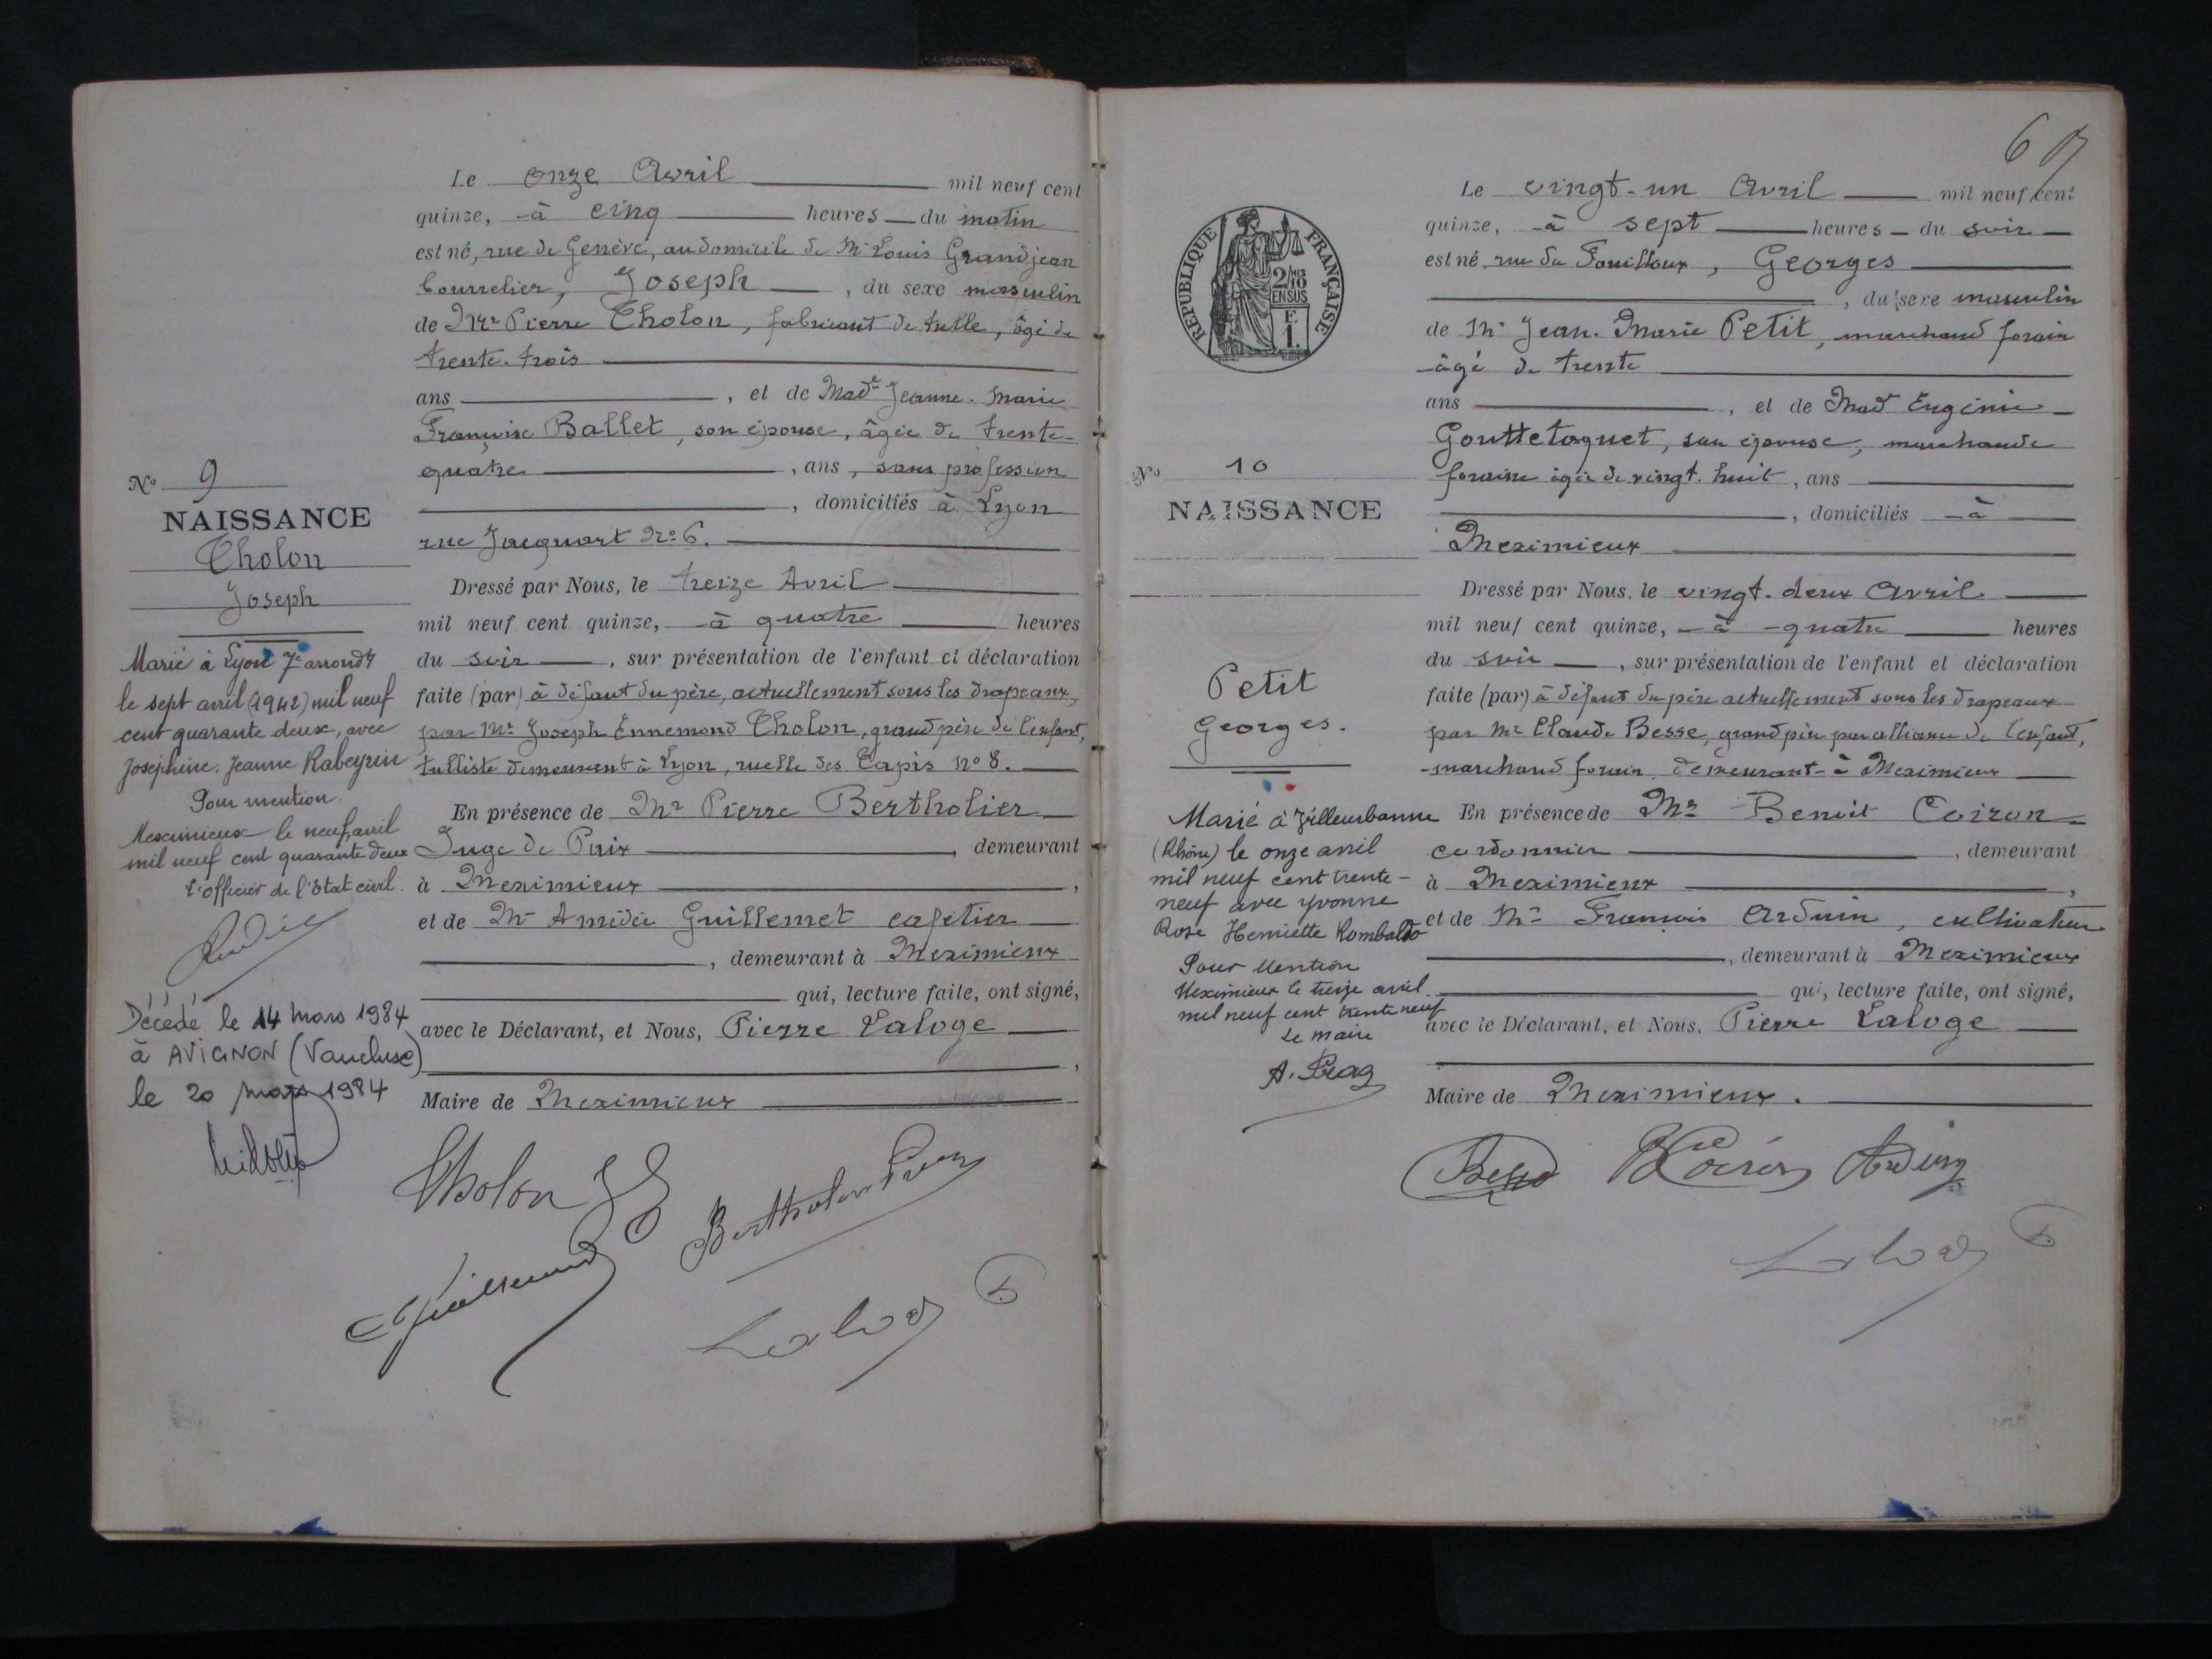 Le onze Avril mil neuf cent
quinze, à cinq heures du matin
est né, rue de Genève, au domicile de Mr Louis Grandjean
bourrelier, Joseph, du sexe masculin
de Mr Pierre Tholon, fabricant de tulle, âgé de
trente-trois
ans, et de Made Jeanne-Marie
Françoise Ballet, son épouse, âgée de trente-
quatre, ans, sans profession
, domiciliés à Lyon
rue Jacquart No 6.
Dressé par Nous, le treize Avril
mil neuf cent quinze, à quatre heures
du soir, sur présentation de l'enfant et déclaration
faite (par) à défaut du père, actuellement sous les drapeaux,
par Mr Joseph Ennemond Tholon, grand père de l'enfant,
tulliste demeurant à Lyon, ruelle des Tapis No 8.
En présence de Mr Pierre Bertholier
Juge de Paix, demeurant
à Meximieux,
et de Mr Amédée Guillemet cafetier
, demeurant à Meximieux
qui, lecture faite, ont signé,
avec le Déclarant, et Nous, Pierre Laloge
,
Maire de Meximieux
Tholon
No 9
NAISSANCE
Tholon
Joseph
Marié à Lyon 7e arrondt
le sept avril (1942) mil neuf
cent quarante deux, avec
Joséphine. Jeanne Rabeyrin
Pour mention.
Meximieux le neuf avril
mil neuf cent quarante deux
L'officier de l'Etat civil.
Décédé le 14 mars 1984
à AVIGNON (Vaucluse)
le 20 mars 1984
60
RÉPUBLIQUE FRANÇAISE
2/10
EN SUS
F.
1.
Le vingt-un Avril mil neuf cent
quinze, à sept heures du soir
est né, rue du Fouilloux, Georges
, du sexe masculin
de Mr Jean-Marie Petit, marchand forain
âgé de trente
ans, et de Made Eugénie
Gouttetoquet, son épouse, marchande
foraine âgée de vingt-huit, ans
, domiciliés à
Meximieux
Dressé par Nous, le vingt-deux Avril
mil neuf cent quinze, à quatre heures
du soir, sur présentation de l'enfant et déclaration
faite (par) à défaut du père actuellement sous les drapeaux
par Mr Claude Besse, grand père par alliance de l'enfant,
marchand forain demeurant à Meximieux
En présence de Mr Benoit Coiron
cordonnier, demeurant
à Meximieux,
et de Mr François Arduin, cultivateur
, demeurant à Meximieux
qui, lecture faite, ont signé,
avec le Déclarant, et Nous, Pierre Laloge
Maire de Meximieux.
Besse Coiron Arduin
No 10
NAISSANCE
Petit
Georges.
Marié à Villeurbanne
(Rhône) le onze avril
mil neuf cent trente-
neuf avec Yvonne
Rose Henriette Rombaldo
Pour Mention
Meximieux le treize avril
mil neuf cent trente neuf
Le maire